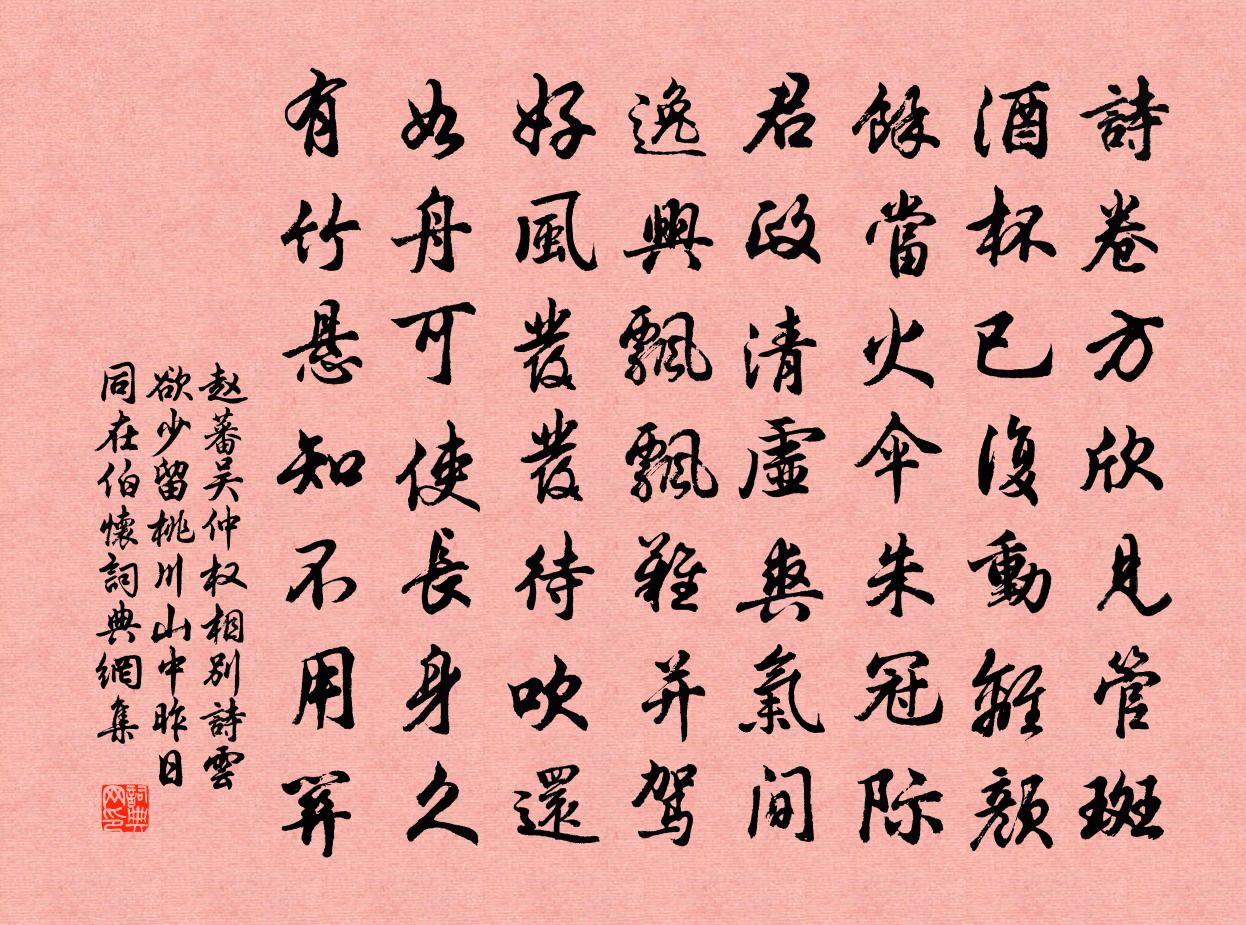 詩卷方欣見管斑
酒杯已復動離顏
餘當火伞朱冠际
君政清虛爽氣间
逸興飄飄難并駕
好風發發待吹還
如舟可使長身久
有竹悬知不用笄
赵蕃吴仲权相别詩雲
欲少留桃川山中昨日
同在伯懷詞典網集
詞典网印